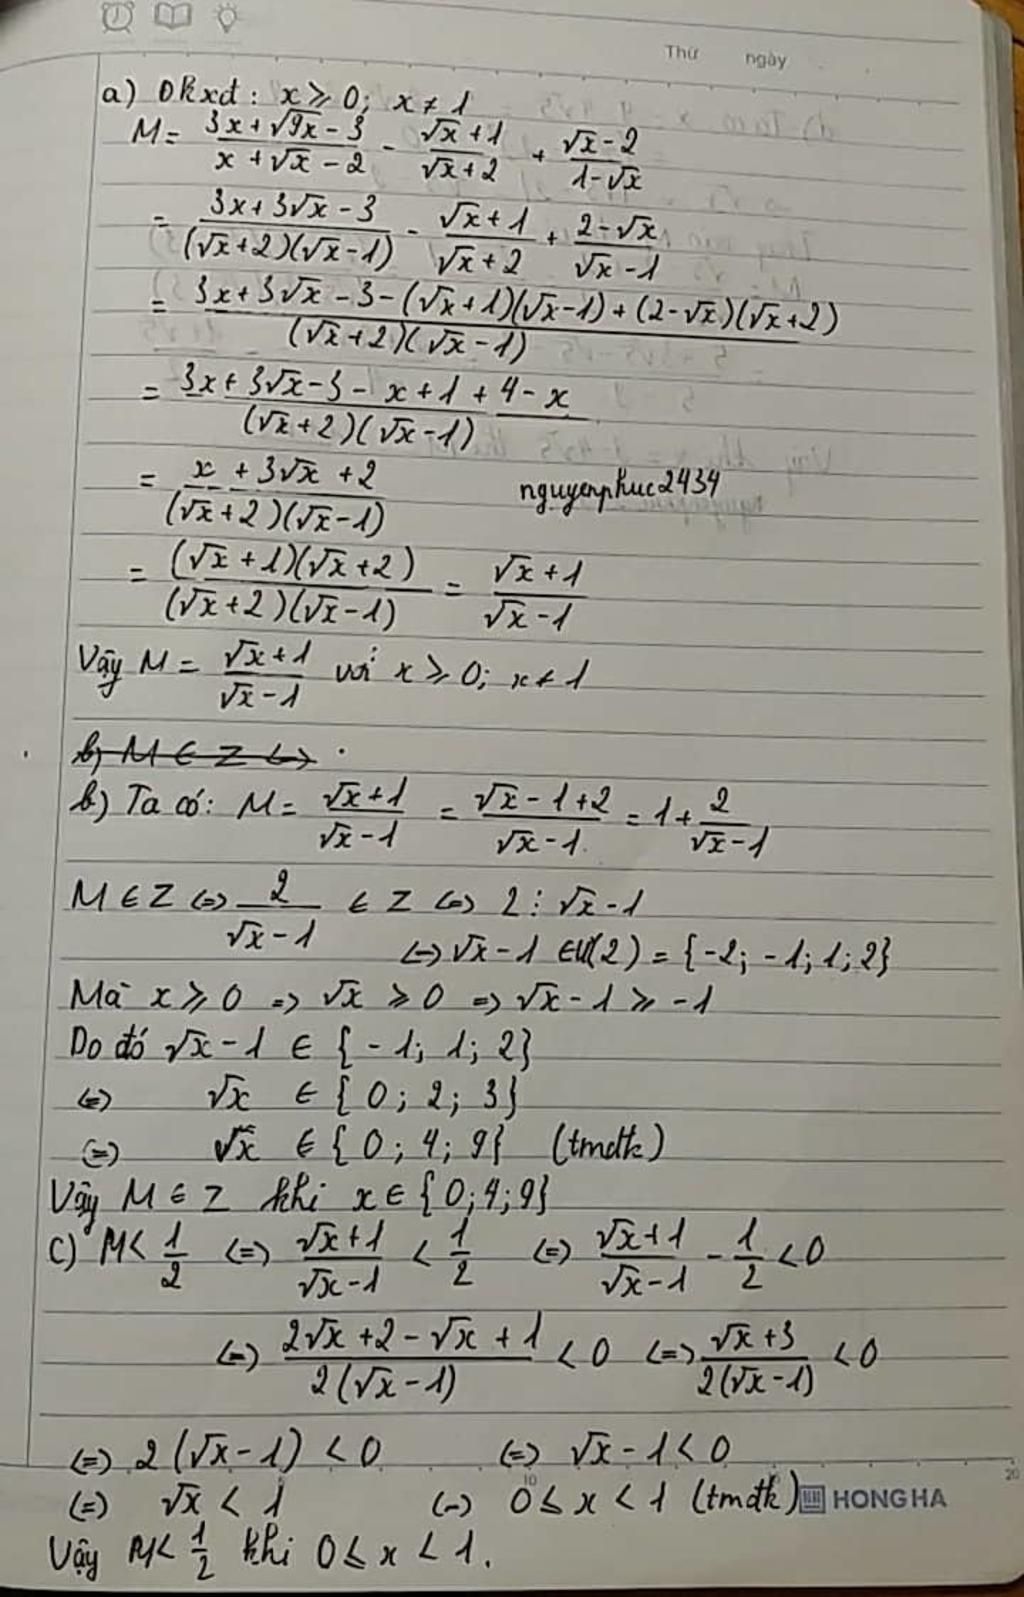 Thứ ngày
a) Đkxđ: x ≥ 0; x ≠ 1
M = (3x + √9x - 3)/(x + √x - 2) - (√x + 1)/(√x + 2) + (√x - 2)/(1 - √x)
= (3x + 3√x - 3)/((√x + 2)(√x - 1)) - (√x + 1)/(√x + 2) + (2 - √x)/(√x - 1)
= (3x + 3√x - 3 - (√x + 1)(√x - 1) + (2 - √x)(√x + 2))/((√x + 2)(√x - 1))
= (3x + 3√x - 3 - x + 1 + 4 - x)/((√x + 2)(√x - 1))
= (x + 3√x + 2)/((√x + 2)(√x - 1)) nguyenphuc2434
= ((√x + 1)(√x + 2))/((√x + 2)(√x - 1)) = (√x + 1)/(√x - 1)
Vậy M = (√x + 1)/(√x - 1) với x ≥ 0; x ≠ 1
b) M ∈ Z <=>
b) Ta có: M = (√x + 1)/(√x - 1) = (√x - 1 + 2)/(√x - 1) = 1 + 2/(√x - 1)
M ∈ Z <=> 2/(√x - 1) ∈ Z <=> 2 ⋮ √x - 1
<=> √x - 1 ∈ Ư(2) = {-2; -1; 1; 2}
Mà x ≥ 0 => √x ≥ 0 => √x - 1 ≥ -1
Do đó √x - 1 ∈ {-1; 1; 2}
<=> √x ∈ {0; 2; 3}
<=> √x ∈ {0; 4; 9} (tmđk)
Vậy M ∈ Z khi x ∈ {0; 4; 9}
c) M < 1/2 <=> (√x + 1)/(√x - 1) < 1/2 <=> (√x + 1)/(√x - 1) - 1/2 < 0
<=> (2√x + 2 - √x + 1)/(2(√x - 1)) < 0 <=> (√x + 3)/(2(√x - 1)) < 0
<=> 2(√x - 1) < 0 <=> √x - 1 < 0
<=> √x < 1 <=> 0 ≤ x < 1 (tmđk) HONG HA
Vậy M < 1/2 khi 0 ≤ x < 1.